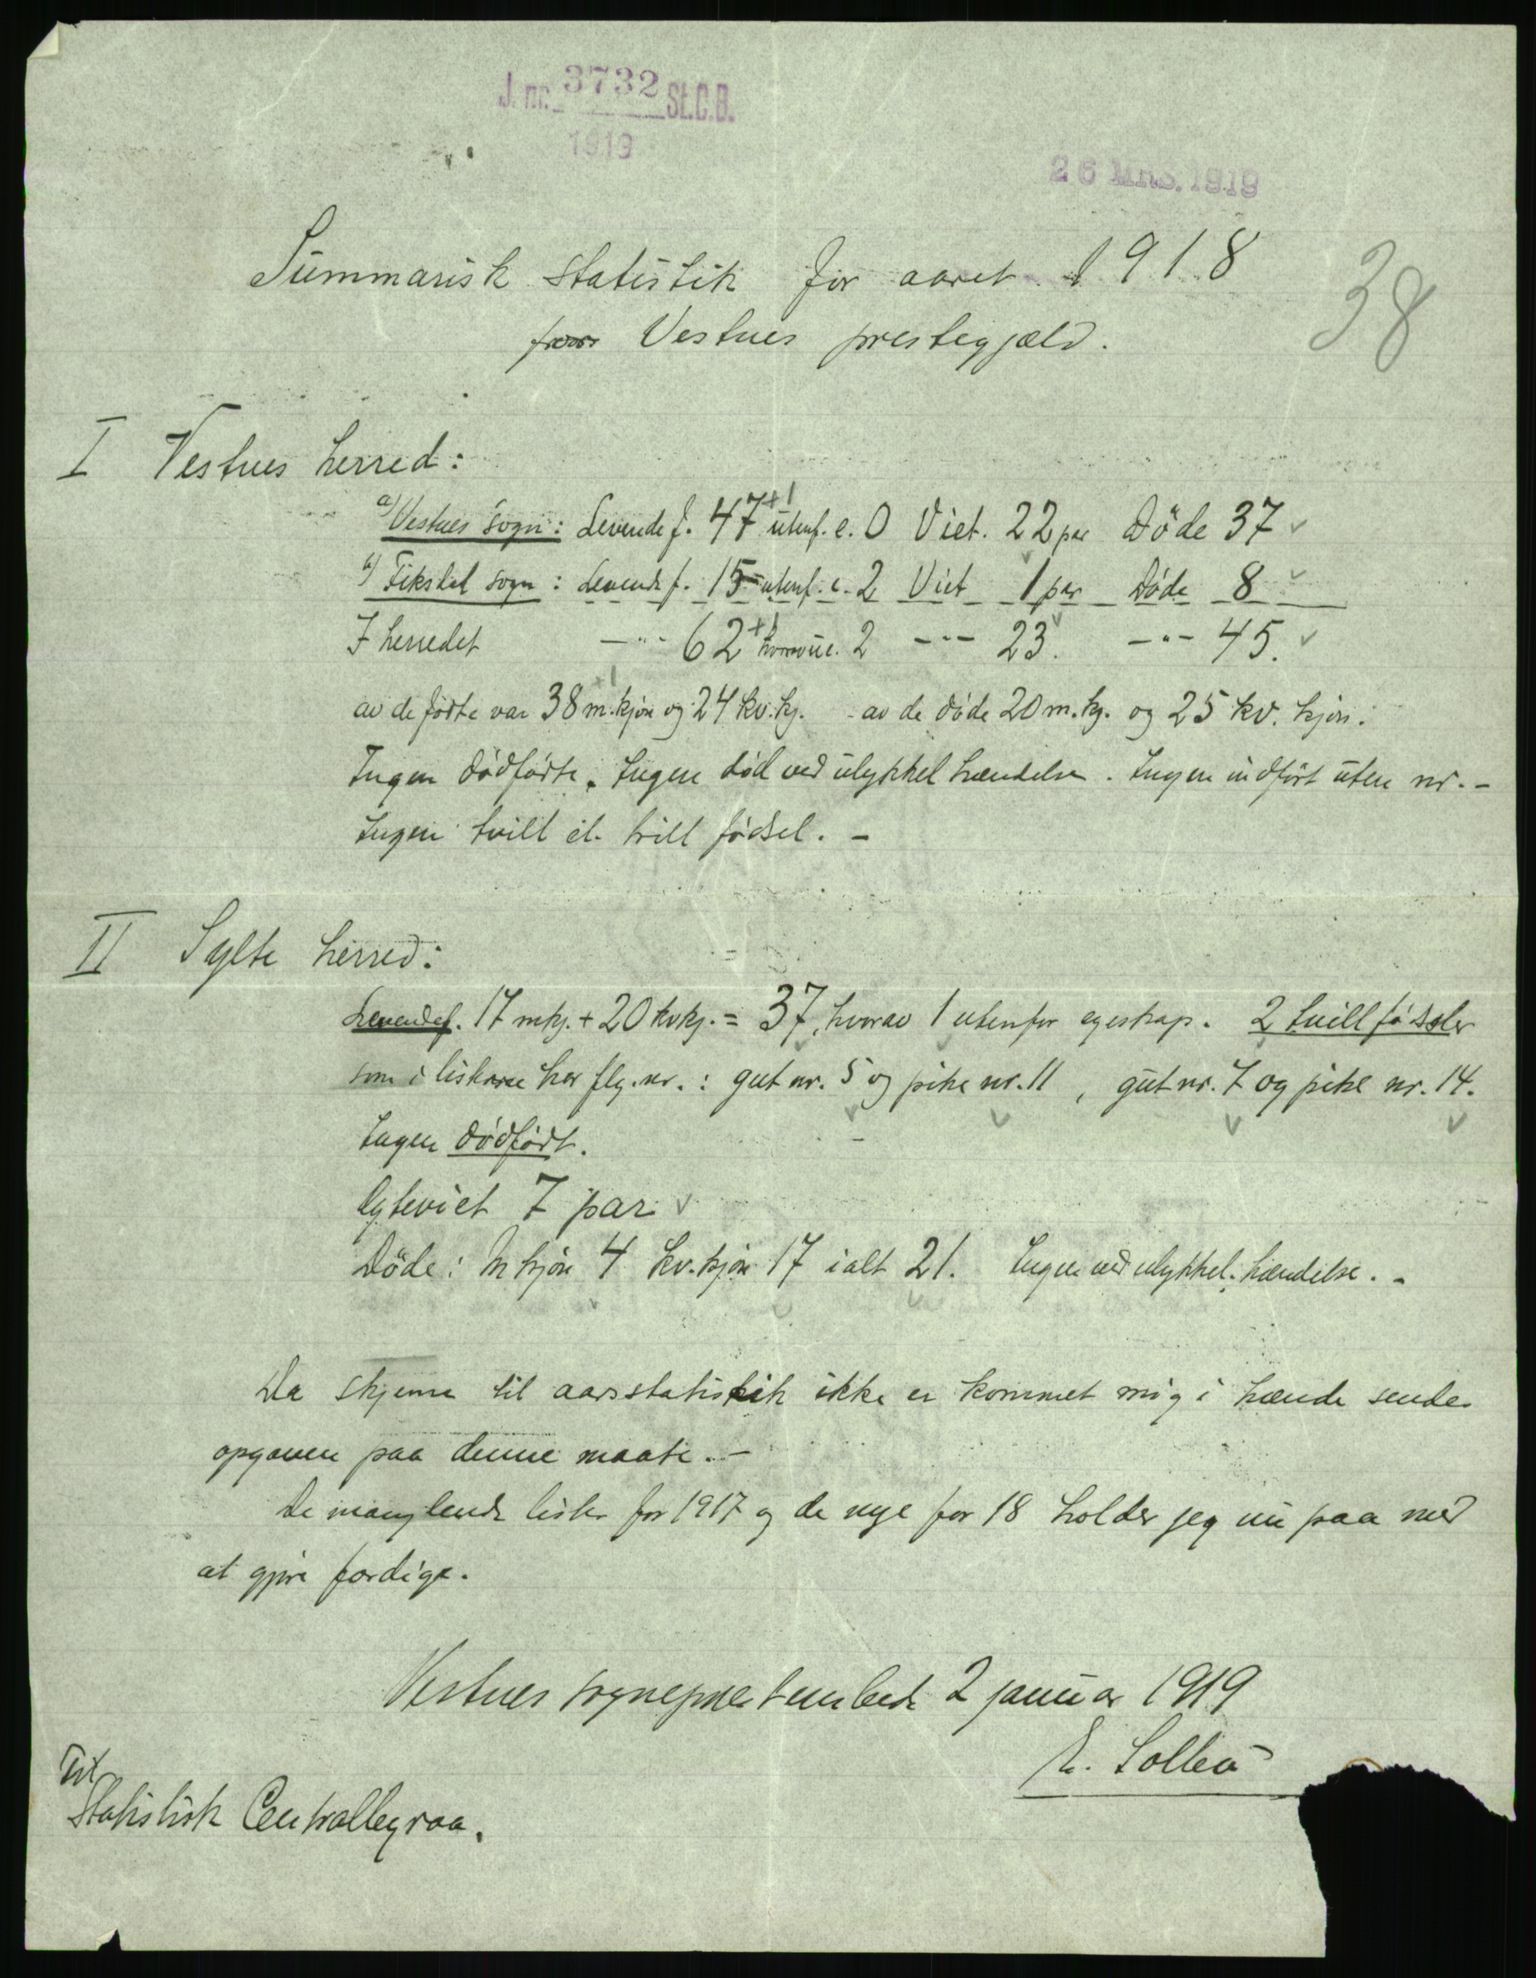 J. nr. 3732 St.C.B.
1919
26 MRS. 1919
Summarisk statistik for aaret 1918
38
Vestnes prestegjæld.
I Vestnes herred:
a) Vestnes sogn: Levende f. 47 +1 utenf. e. 0 Viet. 22 par Døde 37
b) Fiksdal sogn: Levende f. 15 utenf. e. 2 Viet 1 par Døde 8
I herredet -"- 62 +1 hvorav u.e. 2 -"- 23. -"- 45.
+1
av de födte var 38 m. kjön og 24 kv. kj. av de döde 20 m. kj. og 25 kv. kjön.
Ingen dödfödte. Ingen död ved ulykkel hændelse. Ingen indfört uten nr. -
Ingen tvill el. trill fødsel. -
II Sylte herred:
Levendef. 17 mkj. + 20 kvkj. = 37, hvorav 1 utenfor egteskap. 2 tvillfødsler
som i listerne har flg. nr.: gut nr. 5 og pike nr. 11, gut nr. 7 og pike nr. 14.
Ingen dödfödt.
Egteviet 7 par
Döde: M kjön 4 kv. kjön 17 ialt 21. Ingen ved ulykkel. hændelse. -
Da skjema til aarsstatistik ikke er kommet mig i hænde sendes
opgaven paa denne maate. -
De manglende lister for 1917 og de nye for 18 holder jeg nu paa med
at gjøre færdige.
Vestnes sogneprestembede 2 januar 1919
E. Solleu
Til
Statistisk Centralbyraa.